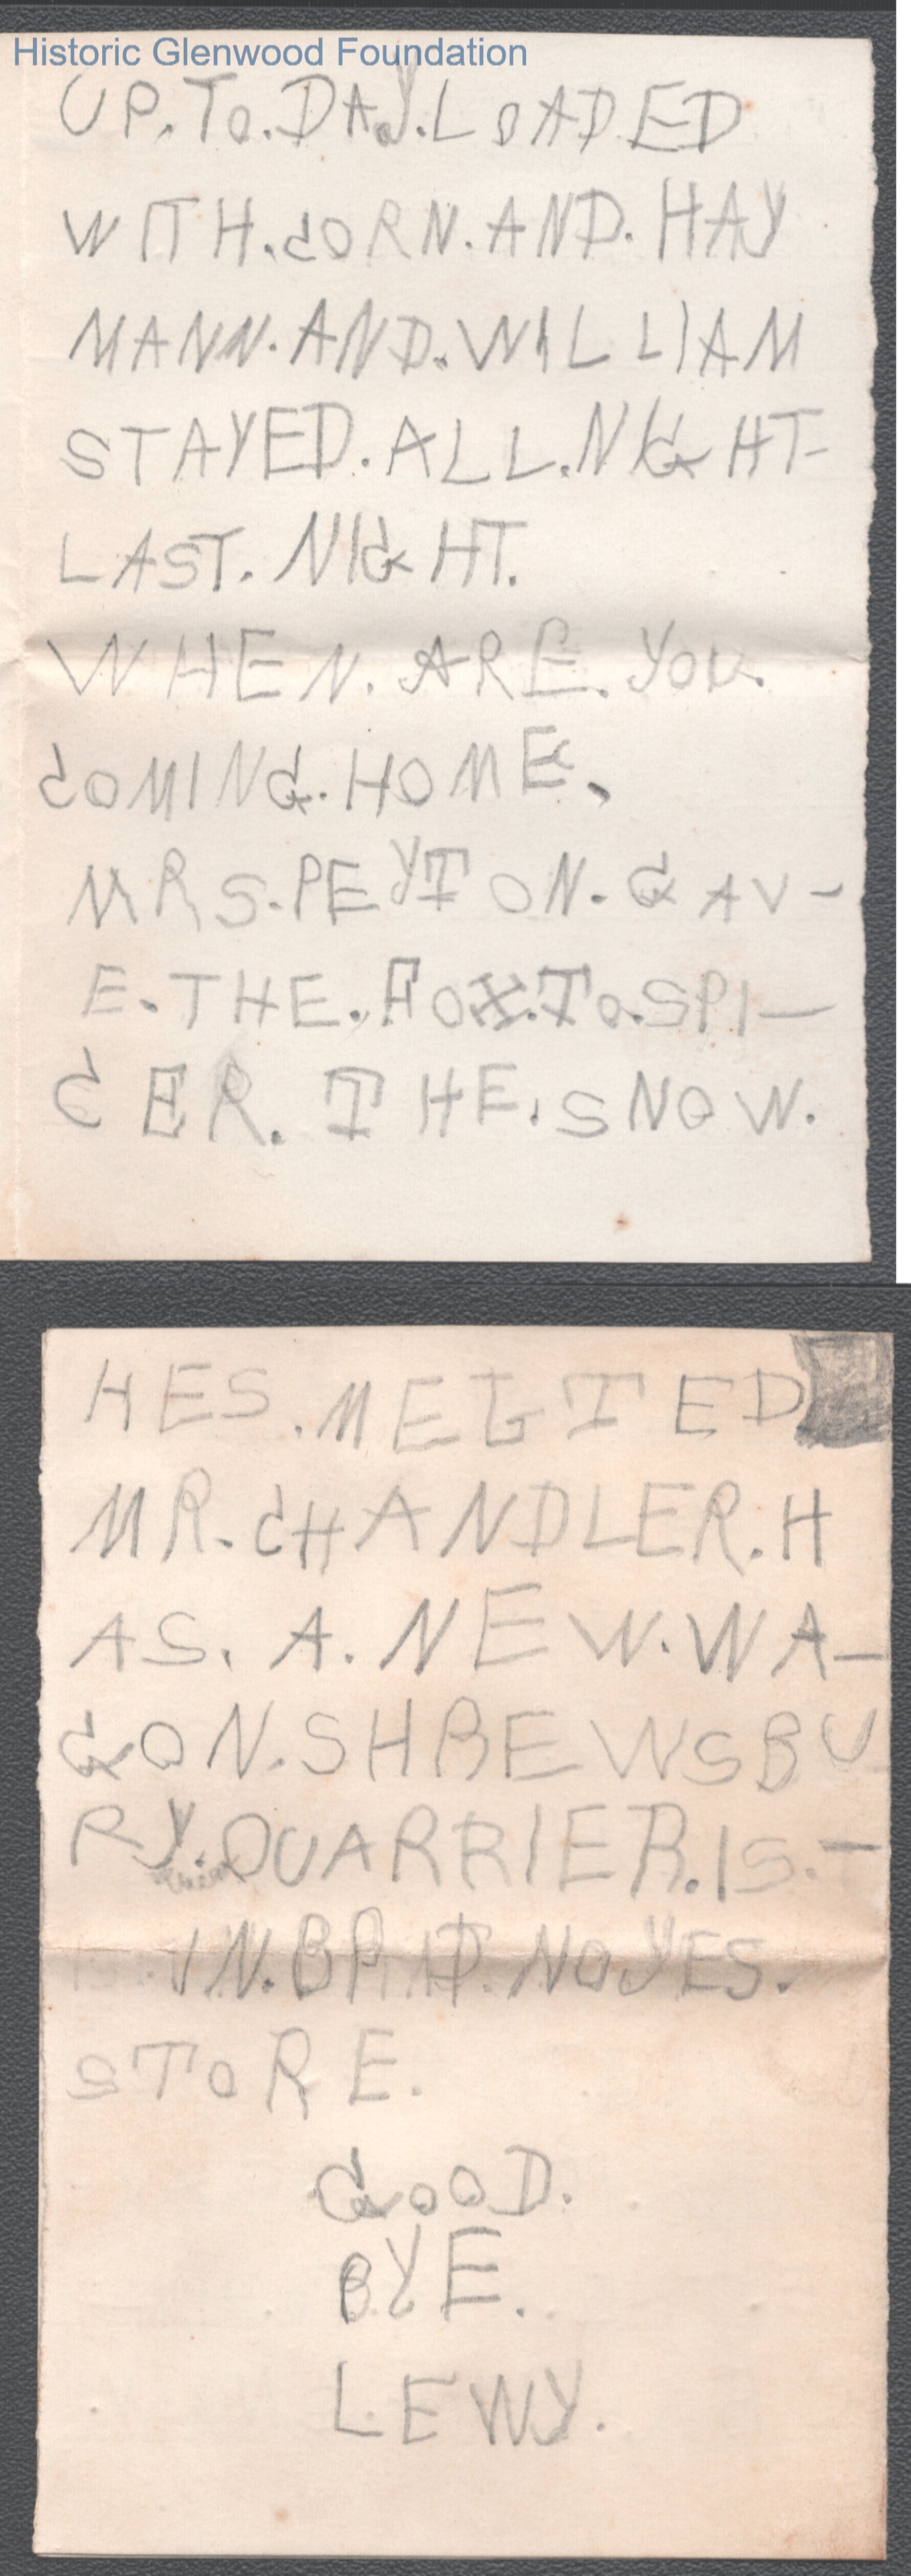 Historic Glenwood Foundation
UP.To.DAY.LOADED
WITH.CORN.AND.HAY
MANN.AND.WILLIAM
STAYED.ALL.NIGHT-
LAST.NIGHT.
WHEN.ARE.YOU.
COMING.HOME.
MRS.PEYTON.GAV-
E.THE.FOX.To.SPI-
CER.THE.SNOW.
HES.MELTED
MR.CHANDLER.H
AS.A.NEW.WA-
GON.SHREWSBU
RY.QUARRIER.IS.-
IN.BRAD.NOYES.
STORE.
GOOD.
BYE.
LEWY.